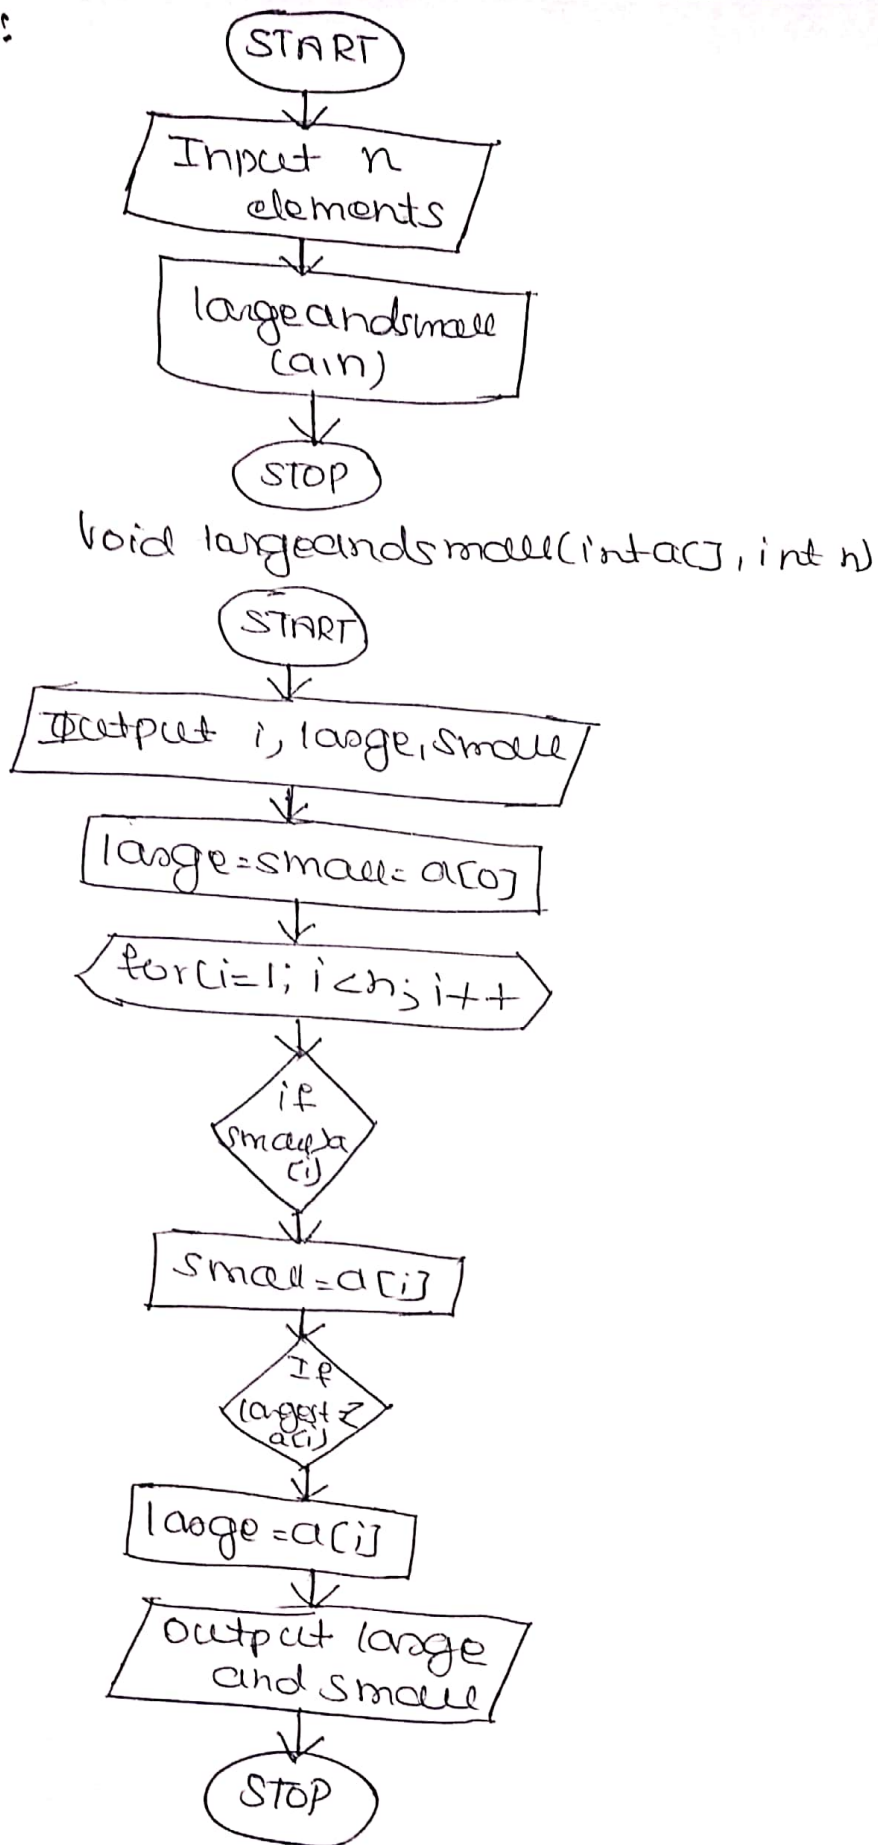 :
START
Input n
elements
largeandsmall
(a,n)
STOP
Void largeandsmall(int a[], int n)
START
Output i, large, small
large=small=a[0]
for(i=1; i<n; i++
if
small>a
[i]
small=a[i]
If
largest<
a[i]
large=a[i]
output large
and small
STOP